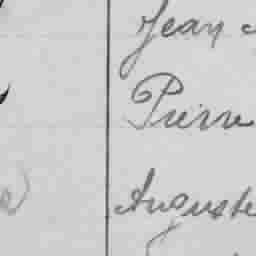 Jean
Pierre
Auguste